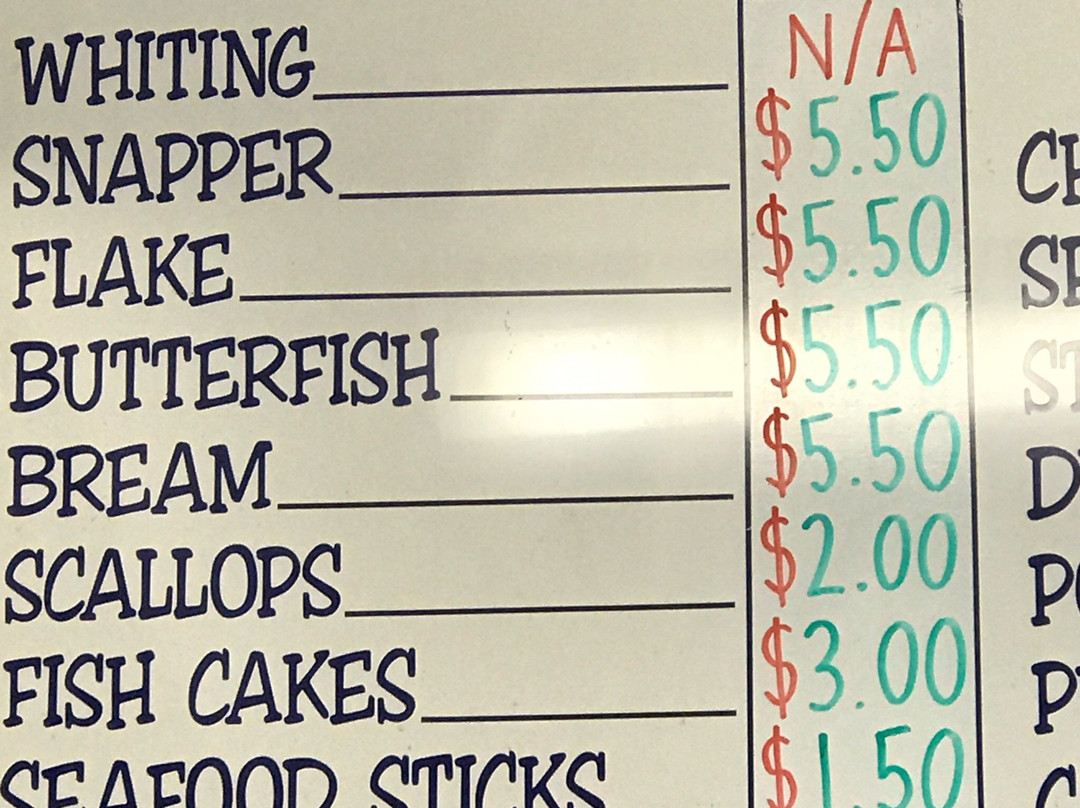 WHITING N/A
SNAPPER $5.50
FLAKE $5.50
BUTTERFISH $5.50
BREAM $5.50
SCALLOPS $2.00
FISH CAKES $3.00
SEAFOOD STICKS $1.50